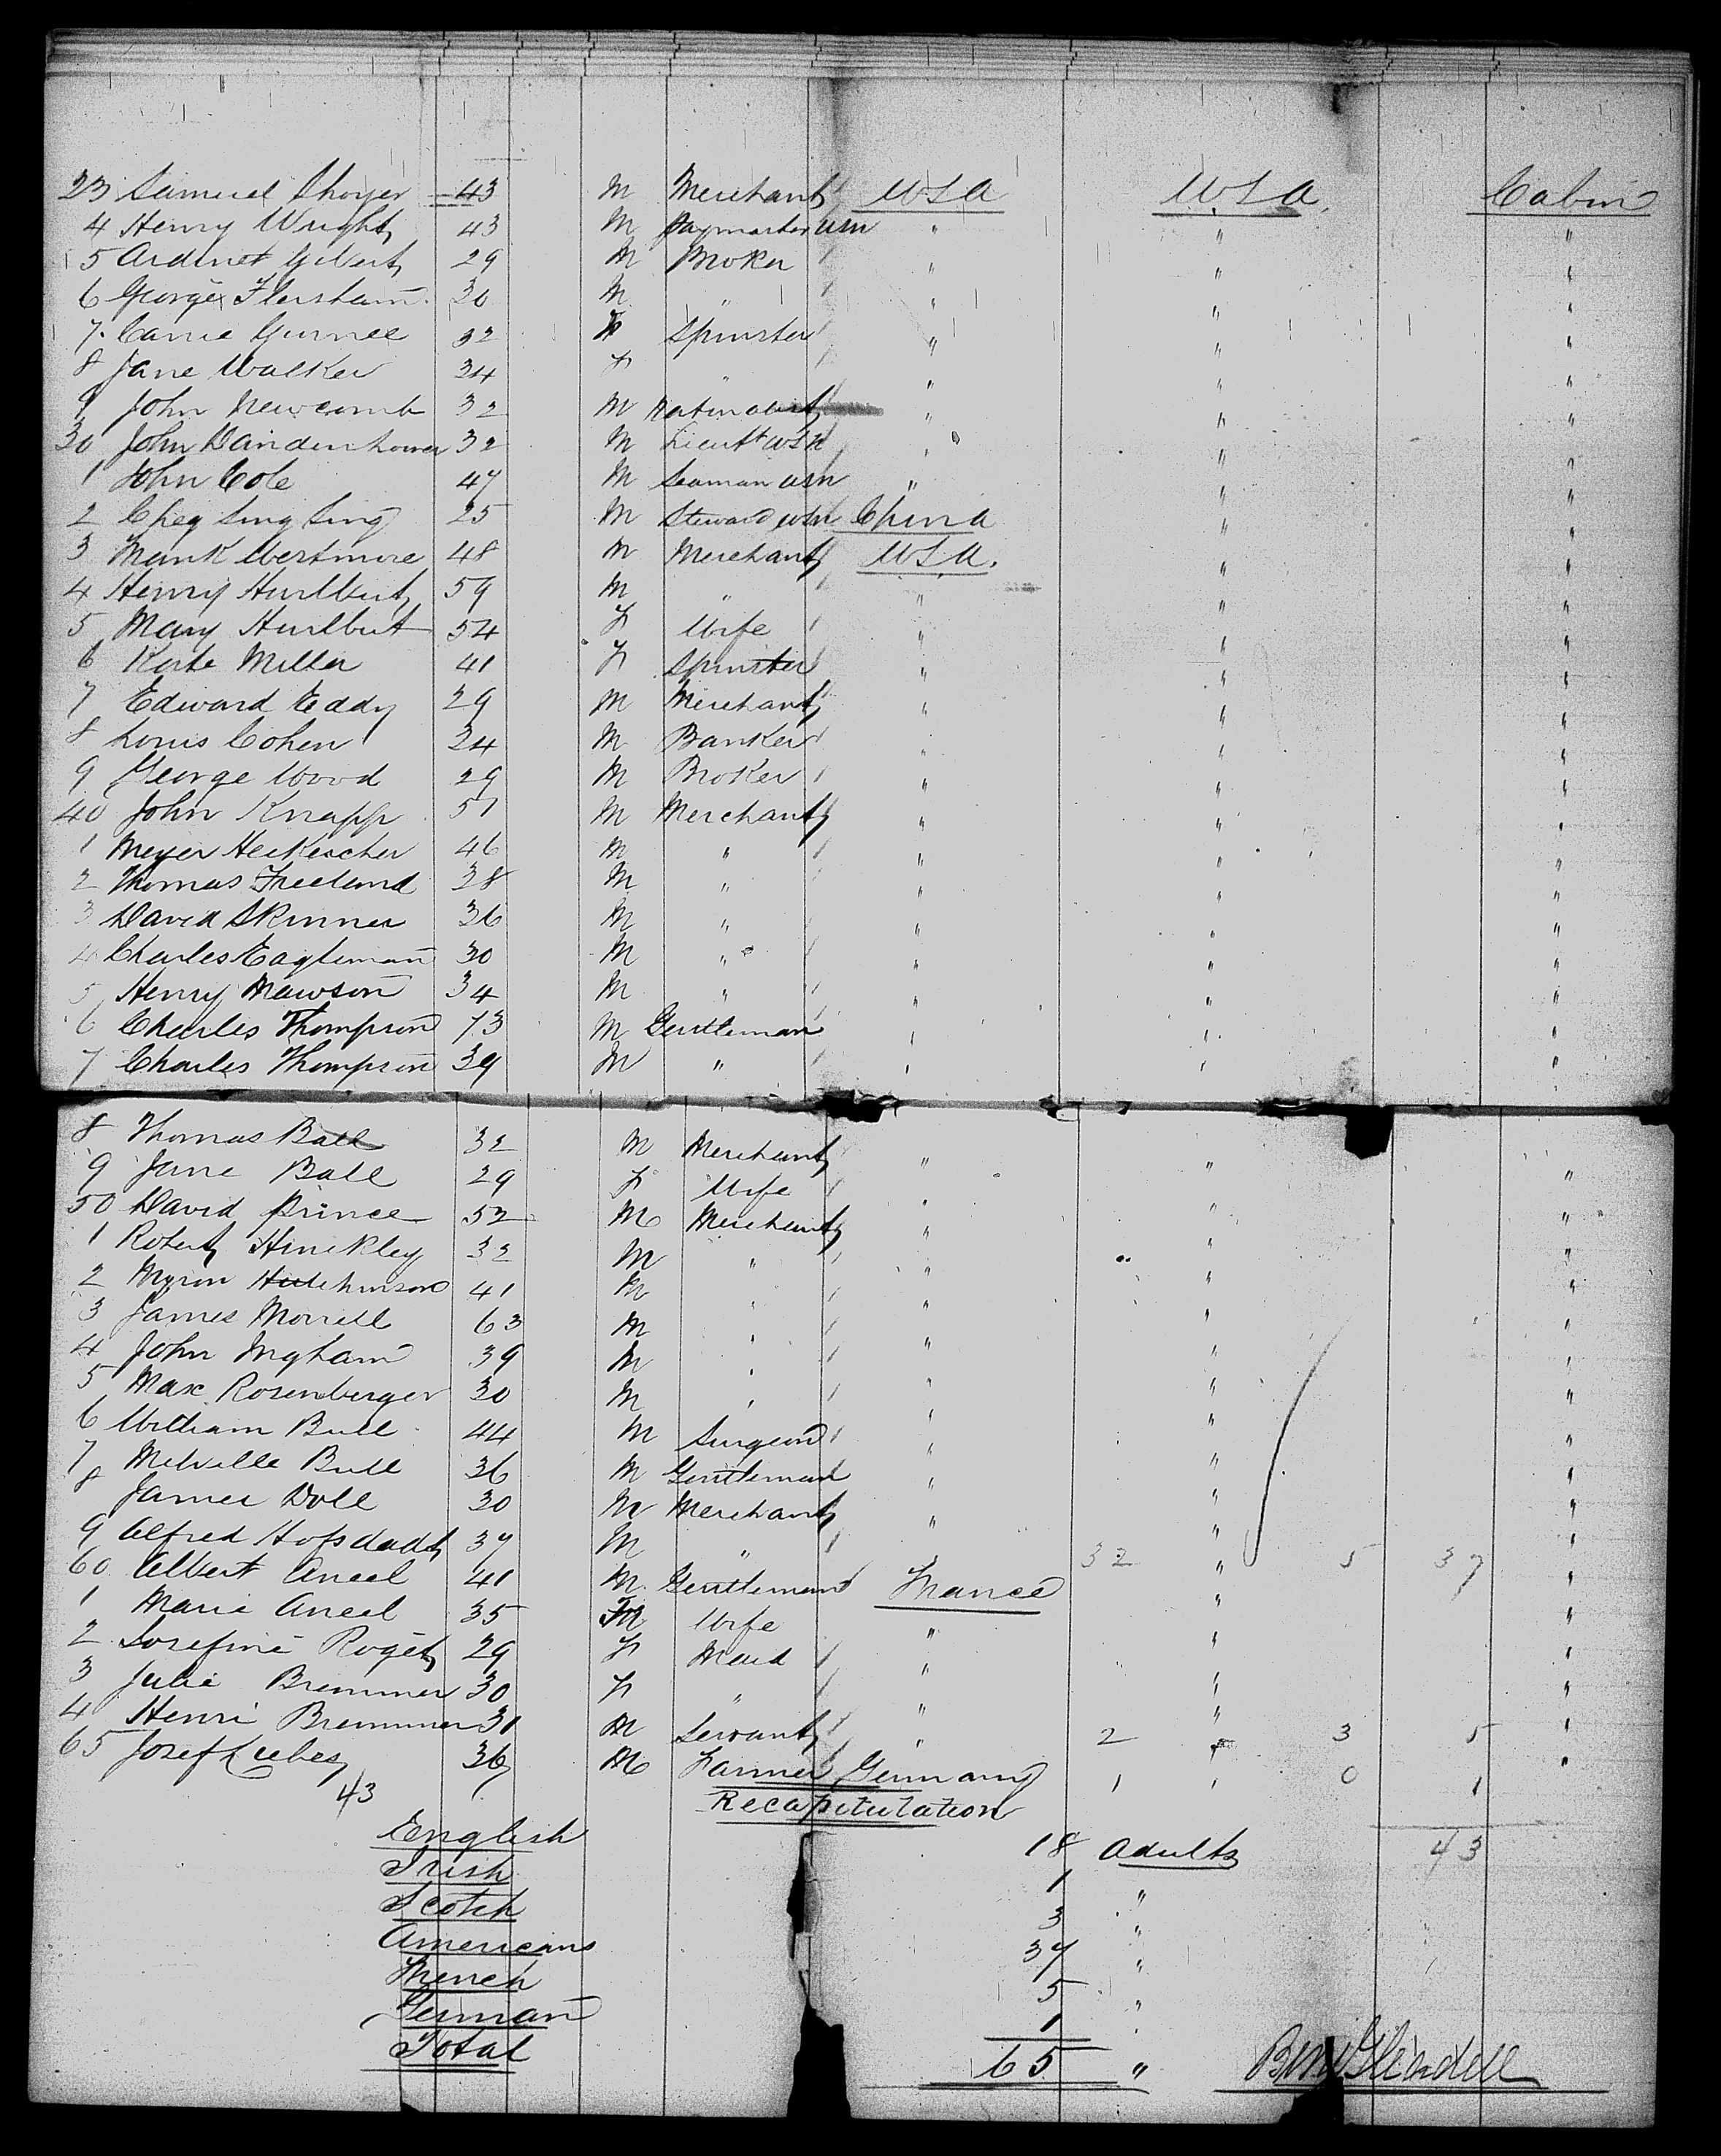 23 Samuel Shoyer 43 M Merchant USA USA Cabin
4 Henry Wright 43 M Paymaster USN " " "
5 Ardinot Gilbert 29 M Broker " " "
6 George Flersham 30 M " " " "
7 Carrie Gurnee 32 F Spinster " " "
8 Jane Walker 34 F " " " "
9 John Newcomb 32 M " " "
30 John Dandenhower 32 M Lieutt USN " " "
1 John Cole 47 M Seaman USN " " "
2 Cheg Sing Sing 25 M Steward USN China " "
3 Mank Westmore 48 M Merchant USA. " "
4 Henry Hurlbut 59 M " " " "
5 Mary Hurlbut 54 F Wife " " "
6 Kate Miller 41 F Spinster " " "
7 Edward Eddy 29 M Merchant " " "
8 Louis Cohen 34 M Banker " " "
9 George Wood 29 M Broker " " "
40 John Knapp 51 M Merchant " " "
1 Meyer Heckscher 46 M " " " "
2 Thomas Freeland 38 M " " " "
3 David Skinner 36 M " " " "
4 Charles Eagleman 30 M " " " "
5 Henry Mawson 34 M " " " "
6 Charles Thompson 73 M Gentleman " " "
7 Charles Thompson 39 M " " " "
8 Thomas Ball 32 M Merchant " " "
9 Jane Ball 29 F Wife " " "
50 David Prince 52 M Merchant " " "
1 Robert Hinckley 32 M " " " "
2 Myron Hutchinson 41 M " " " "
3 James Morrell 63 M " " " "
4 John Ingham 39 M " " " "
5 Max Rosenberger 30 M " " " "
6 William Bull 44 M Surgeon " " "
7 Melville Bull 36 M Gentleman " " "
8 James Doll 30 M Merchant " " "
9 Alfred Hofsdadt 37 M " " " "
60 Albert Aneel 41 M Gentleman France 32 " 5 37 "
1 Marie Aneel 35 F Wife " " "
2 Josefine Roget 29 F Maid " " "
3 Julie Bremmer 30 F " " " "
4 Henri Bremmer 31 M Servant " 2 " 3 5 "
65 Josef Cubes 36 M Farmer Germany 1 " 0 1 "
43 Recapitulation
English 18 Adults 43
Irish 1 "
Scotch 3 "
Americans 37 "
French 5 "
German 1 "
Total 65 "